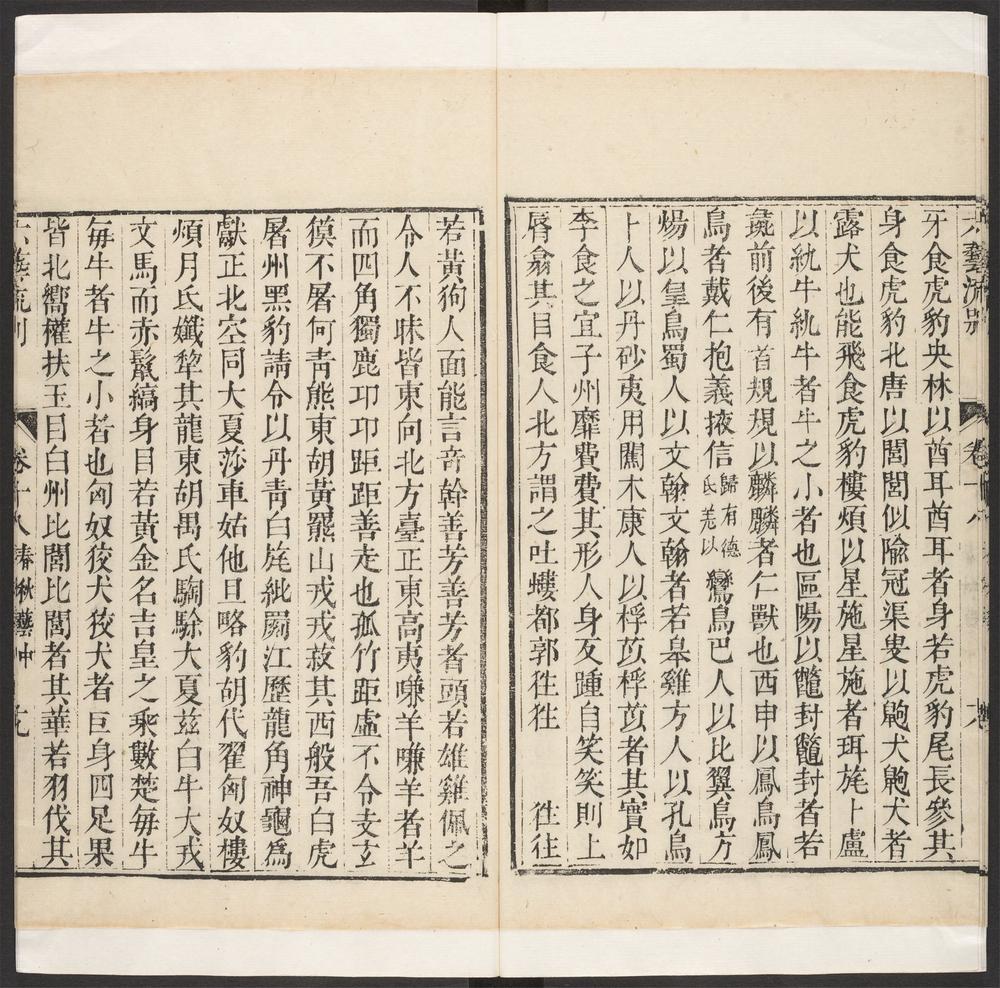 六藝流別 卷十八
牙食虎豹央林以酋耳酋耳者身若虎豹尾長參其
身食虎豹北唐以閭閭似隃冠渠叟以䶂犬䶂犬者
露犬也能飛食虎豹樓煩以星施星施者珥旄卜盧
以紈牛紈牛者牛之小者也區陽以鼈封鼈封者若
彘前後有首規規以麟麟者仁獸也西申以鳳鳥鳳
鳥者戴仁抱義掖信歸有德氐羌以鸞鳥巴人以比翼鳥方
煬以皇鳥蜀人以文翰文翰者若皋雞方人以孔鳥
卜人以丹砂夷用闒木康人以桴苡桴苡者其實如
李食之宜子州靡費費其形人身反踵自笑笑則上
唇翕其目食人北方謂之吐螻都郭狌狌 狌狌
若黃狗人面能言奇幹善芳善芳者頭若雄雞佩之
令人不昧皆東向北方臺正東高夷嗛羊嗛羊者羊
而四角獨鹿卭卭距距善走也孤竹距虛不令支玄
獏不屠何青熊東胡黃羆山戎戎菽其西般吾白虎
屠州黑豹請令以丹青白旄紕罽江歷龍角神龜為
獻正北空同大夏莎車姑他旦略豹胡代翟匈奴樓
煩月氏孅犂其龍東胡禺氏騊駼大夏兹白牛大戎
文馬而赤鬣縞身目若黃金名吉皇之乘數楚每牛
每牛者牛之小者也匈奴狡犬狡犬者巨身四足果
皆北嚮權扶玉目白州比閭比閭者其華若羽伐其
六藝流別 卷十八 春秋藝中 九